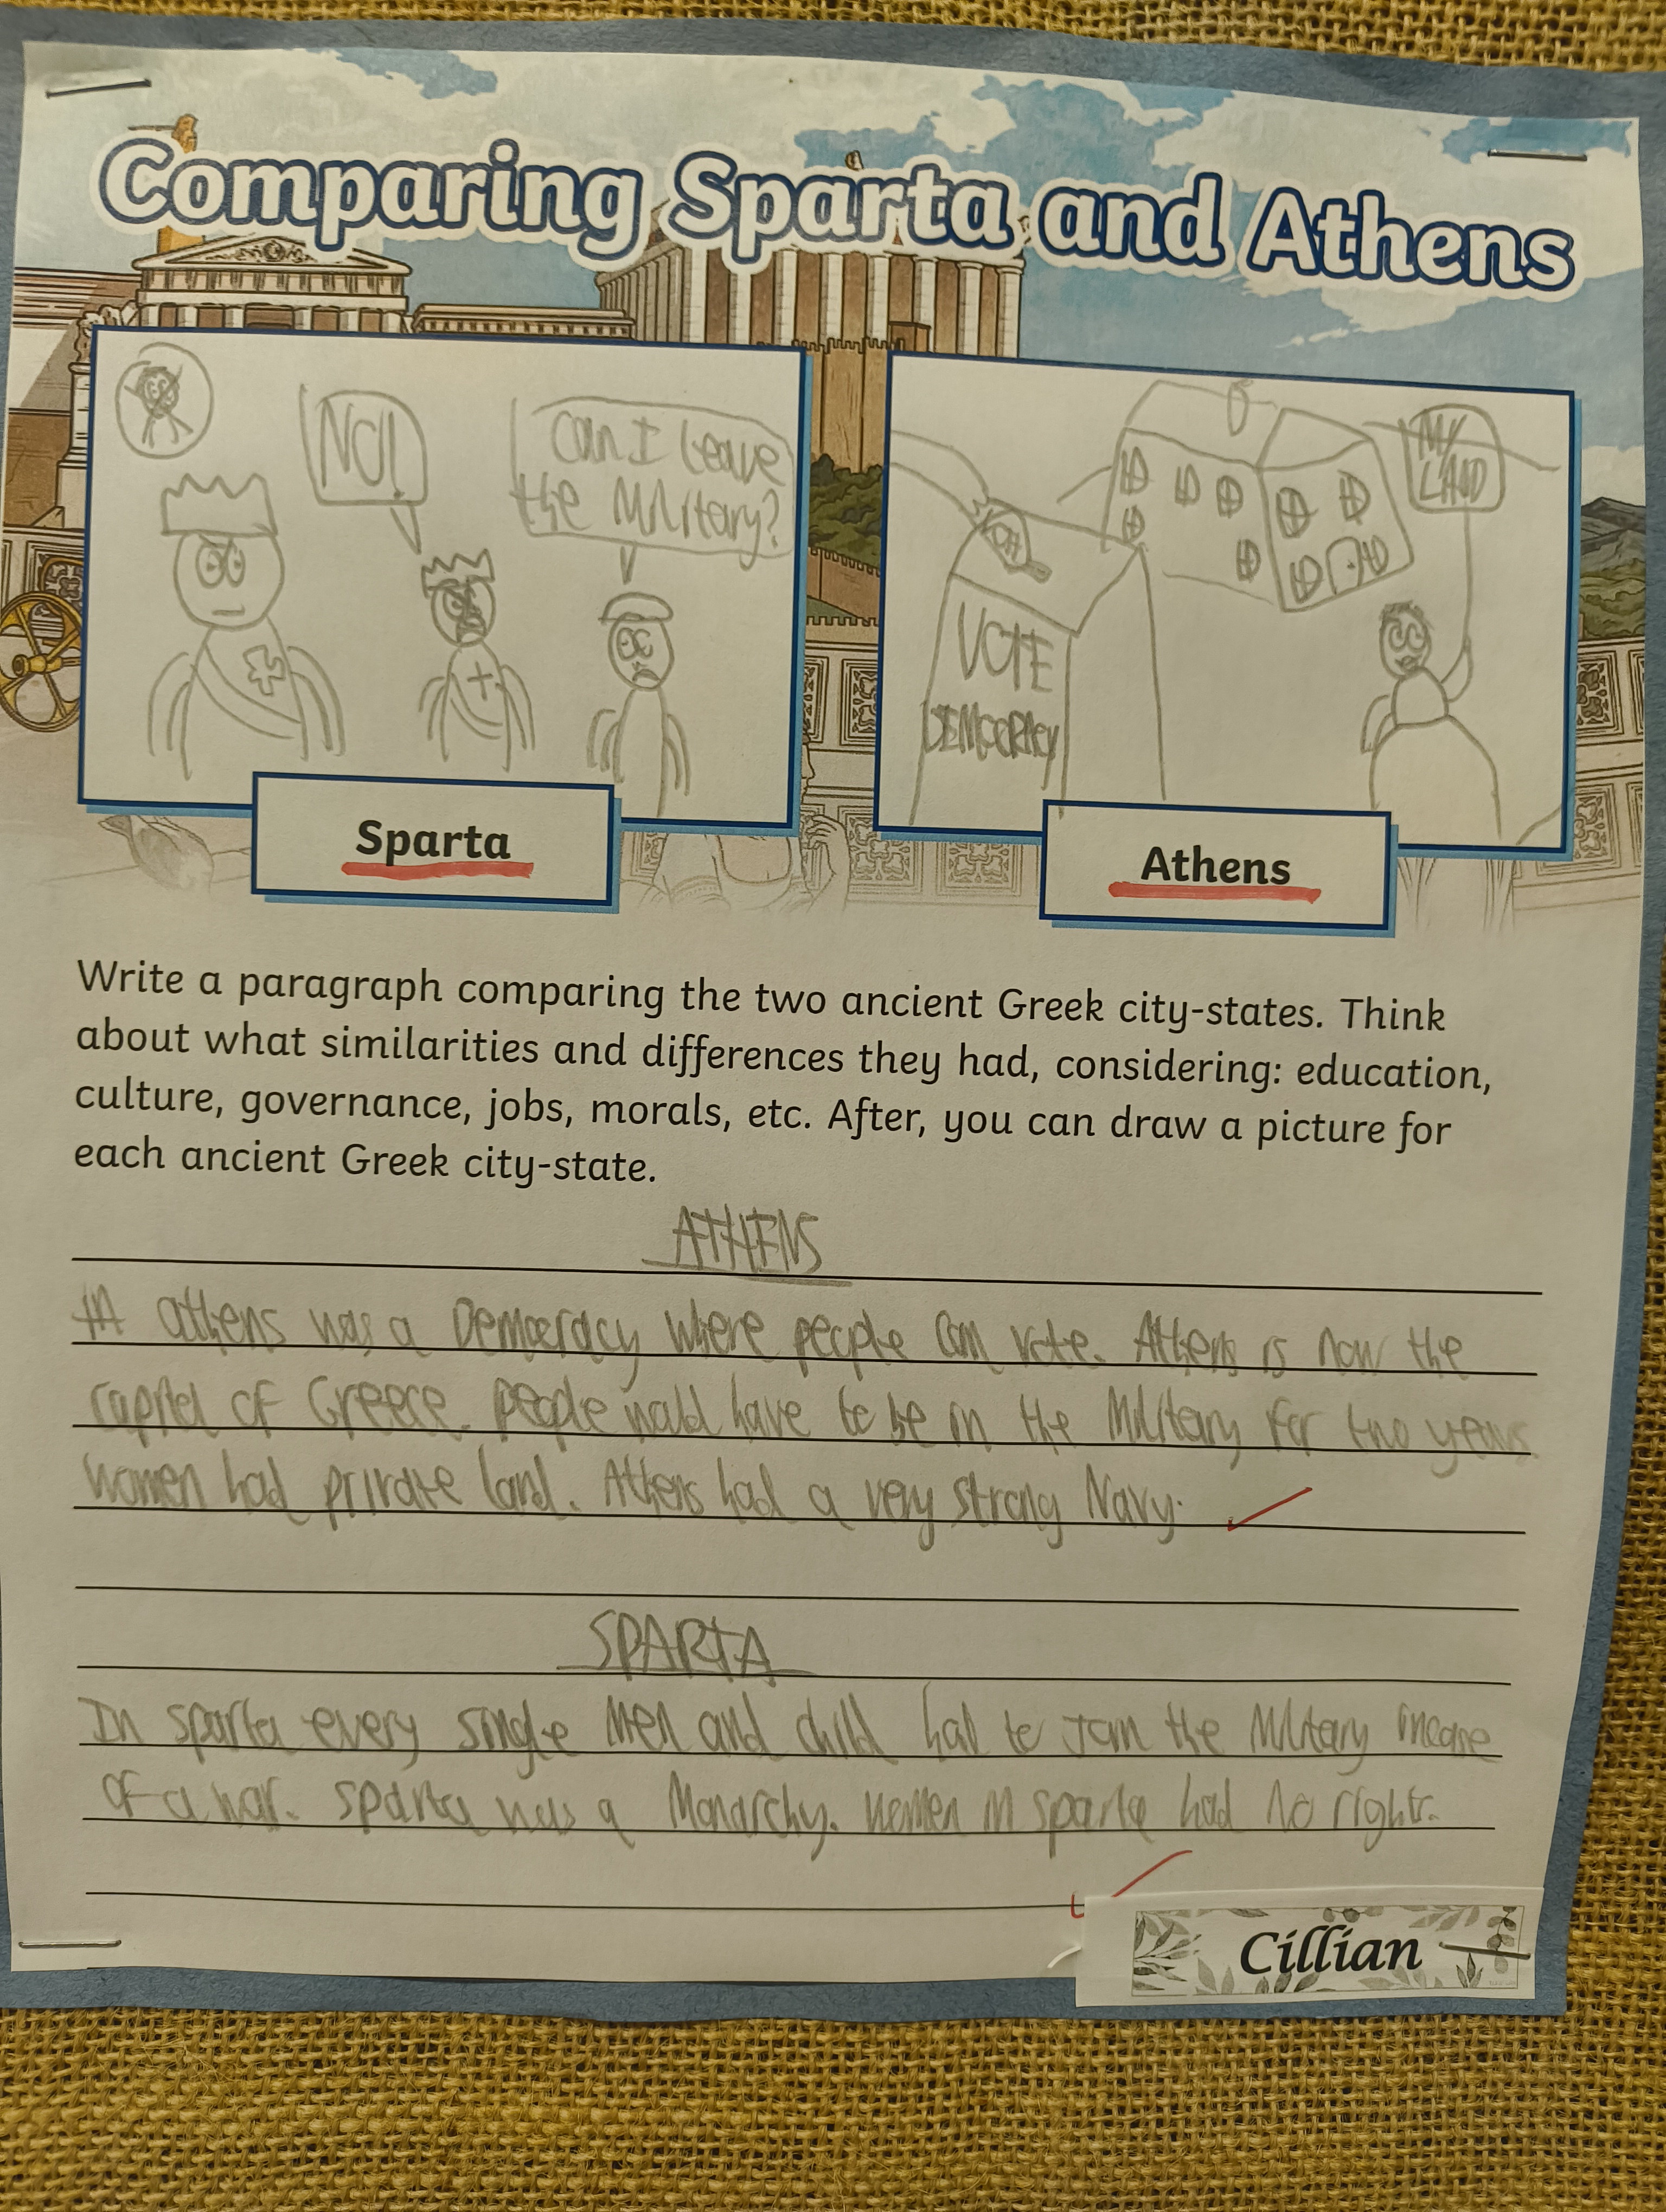 Comparing Sparta and Athens
NO!
Can I leave
the Military?
MY
LAND
VOTE
VOTE
DEMOCRACY
Sparta
Athens
Write a paragraph comparing the two ancient Greek city-states. Think
about what similarities and differences they had, considering: education,
culture, governance, jobs, morals, etc. After, you can draw a picture for
each ancient Greek city-state.
ATHENS
athens was a Democracy where people can vote. Athens is now the
capital of Greece. People would have to be in the Military for two years.
Women had private land. Athens had a very strong Navy.
SPARTA
In sparta every single Men and child had to Join the Military incase
of a war. Sparta was a Monarchy. women in sparta had No rights.
Cillian